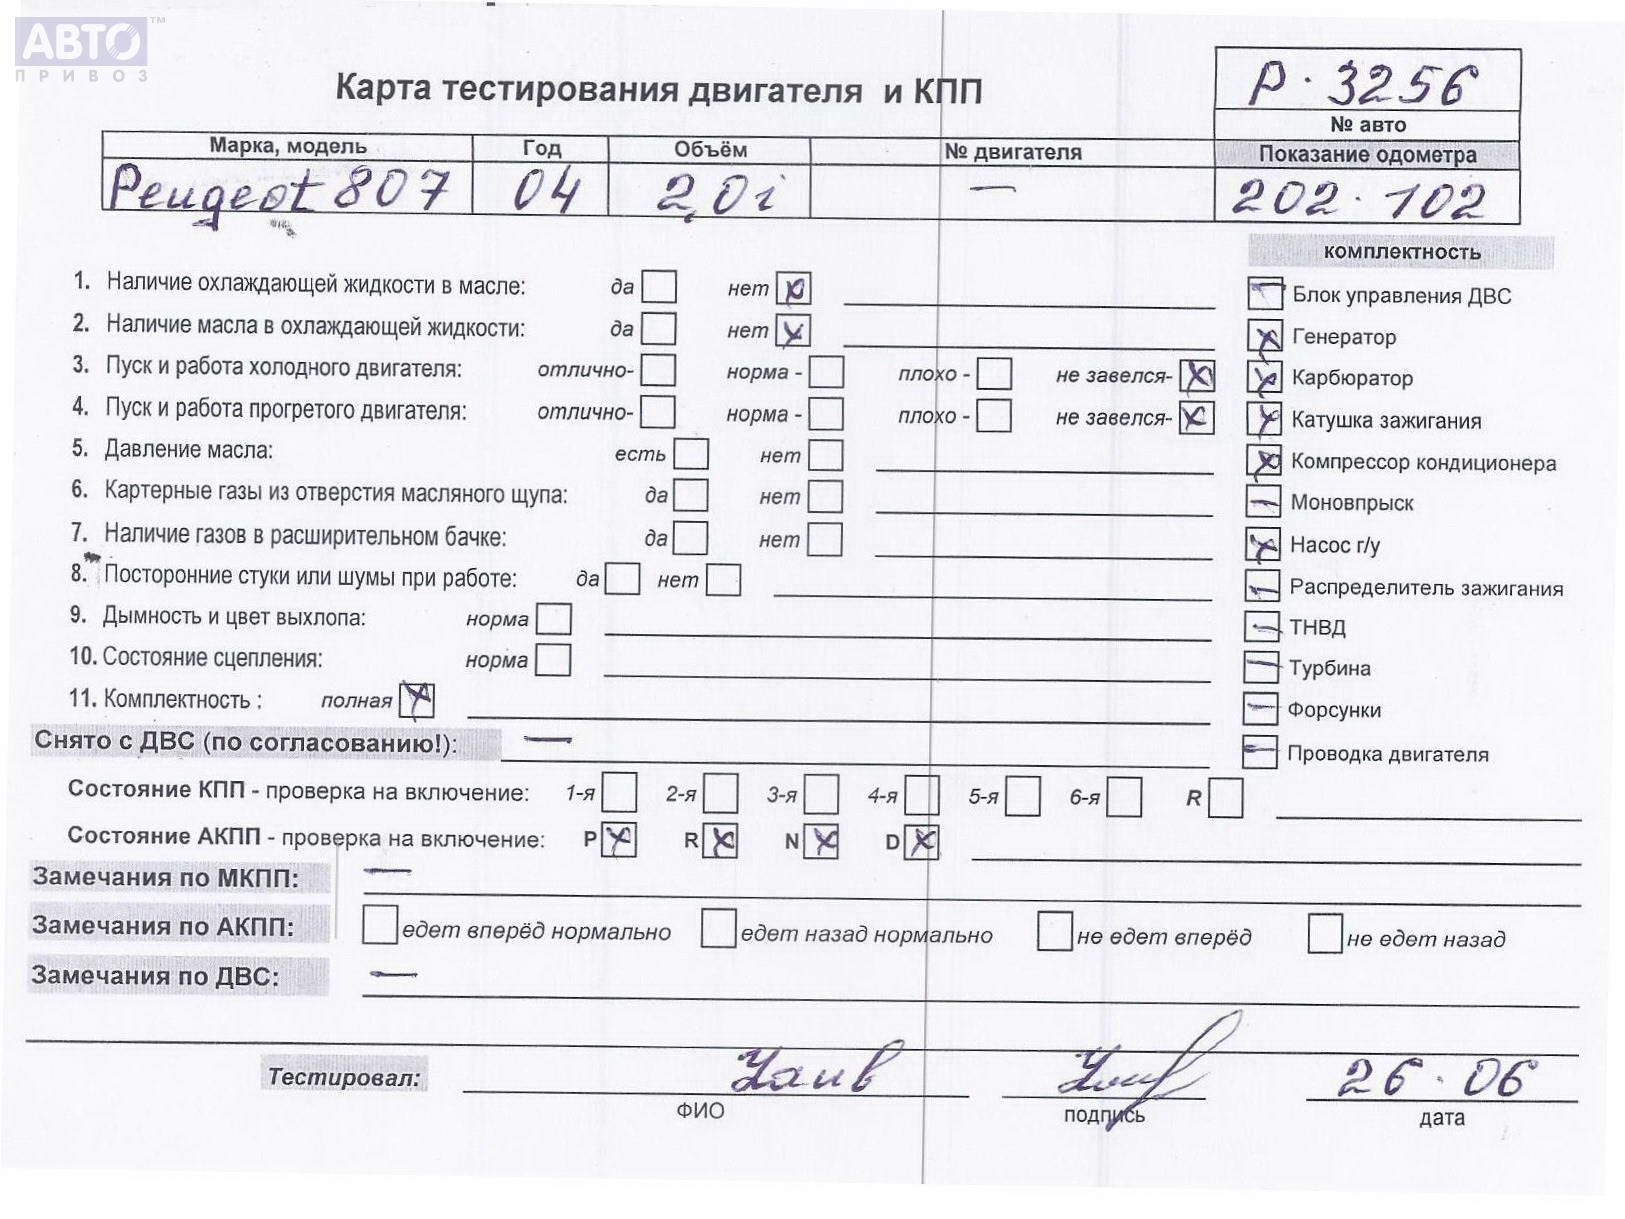 АВТО™
ПРИВОЗ
Карта тестирования двигателя и КПП
Р·3256
№ авто
Марка, модель Год Объём № двигателя Показание одометра
Peugeot 807 04 2,0i — 202·102
комплектность
1. Наличие охлаждающей жидкости в масле: да нет
Блок управления ДВС
2. Наличие масла в охлаждающей жидкости: да нет
Генератор
3. Пуск и работа холодного двигателя: отлично- норма - плохо - не завелся-
Карбюратор
4. Пуск и работа прогретого двигателя: отлично- норма - плохо - не завелся-
Катушка зажигания
5. Давление масла: есть нет
Компрессор кондиционера
6. Картерные газы из отверстия масляного щупа: да нет
Моновпрыск
7. Наличие газов в расширительном бачке: да нет
Насос г/у
8. Посторонние стуки или шумы при работе: да нет
Распределитель зажигания
9. Дымность и цвет выхлопа: норма
ТНВД
10. Состояние сцепления: норма
Турбина
11. Комплектность : полная
Форсунки
Снято с ДВС (по согласованию!): —
Проводка двигателя
Состояние КПП - проверка на включение: 1-я 2-я 3-я 4-я 5-я 6-я R
Состояние АКПП - проверка на включение: P R N D
Замечания по МКПП: —
Замечания по АКПП: едет вперёд нормально едет назад нормально не едет вперёд не едет назад
Замечания по ДВС: —
Тестировал: 26·06
ФИО подпись дата